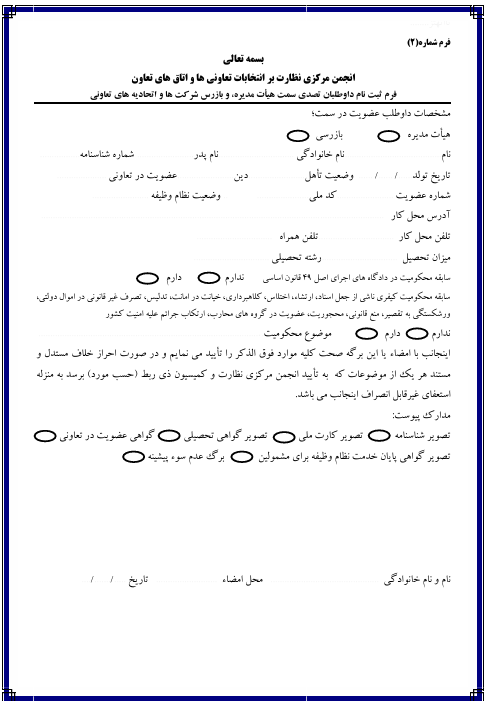 فرم شماره(۲)
بسمه تعالی
انجمن مرکزی نظارت بر انتخابات تعاونی ها و اتاق های تعاون
فرم ثبت نام داوطلبان تصدی سمت هیأت مدیره، و بازرس شرکت ها و اتحادیه های تعاونی
مشخصات داوطلب عضویت در سمت؛
هیأت مدیره بازرسی
نام نام خانوادگی نام پدر شماره شناسنامه
تاریخ تولد / / وضعیت تأهل دین عضویت در تعاونی
شماره عضویت کد ملی وضعیت نظام وظیفه
آدرس محل کار
تلفن محل کار تلفن همراه
میزان تحصیل رشته تحصیلی
سابقه محکومیت در دادگاه های اجرای اصل ۴۹ قانون اساسی ندارم دارم
سابقه محکومیت کیفری ناشی از جعل اسناد، ارتشاء، اختلاس، کلاهبرداری، خیانت در امانت، تدلیس، تصرف غیر قانونی در اموال دولتی،
ورشکستگی به تقصیر، منع قانونی، محجوریت، عضویت در گروه های محارب، ارتکاب جرائم علیه امنیت کشور
ندارم دارم موضوع محکومیت
اینجانب با امضاء پا این برگه صحت کلیه موارد فوق الذکر را تأیید می نمایم و در صورت احراز خلاف مستدل و
مستند هر یک از موضوعات که به تأیید انجمن مرکزی نظارت و کمیسیون ذی ربط (حسب مورد) برسد به منزله
استعفای غیرقابل انصراف اینجانب می باشد.
مدارک پیوست:
تصویر شناسنامه تصویر کارت ملی تصویر گواهی تحصیلی گواهی عضویت در تعاونی
تصویر گواهی پایان خدمت نظام وظیفه برای مشمولین برگ عدم سوء پیشینه
نام و نام خانوادگی محل امضاء تاریخ / /